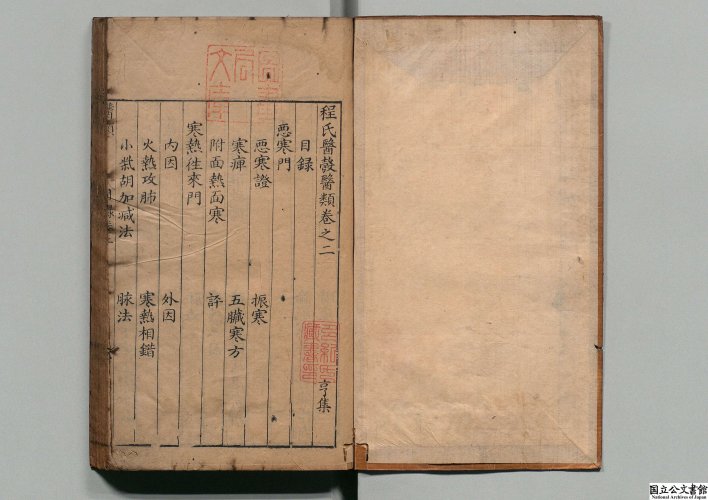 程氏醫彀醫類卷之二 亨集
目録
惡寒門
惡寒證 振寒
寒痺 五臟寒方
附面熱面寒 評
寒熱往來門
内因 外因
火熱攻肺 寒熱相錯
小柴胡加减法 脉法
国立公文書館
National Archives of Japan